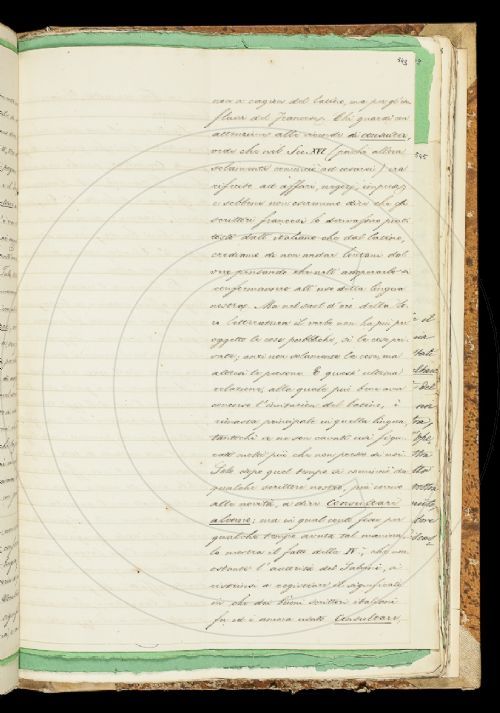 343
non a cagion del latino, ma per gl'in
flussi del francese. Chi guardi con
attenzione alle vicende di consultar,
vede che nel Sec. XVI (poiché allora
solamente cominciò ad usarsi) era
riferito ad affari, negozj, imprese,
e sebbene non oseremmo dire che gli
scrittori francesi lo derivassero piut
tosto dall'italiano che dal latino,
crediamo di non andar lontani dal
vero pensando che nell'adoperarlo si
conformassero all'uso della lingua
nostra. Ma nel secol d'oro della lo
ro letteratura il verbo non ha più per
oggetto le cose pubbliche, sì le cose pri
vate; anzi non solamente la cosa, ma
altresì la persona. E quest'ultima
relazione, alla quale può bene aver
concorso l'imitazione del latino, è
rimasta principale in quella lingua,
tantoché se ne son cavati usi figu
rati molto più che non porti da noi.
Solo dopo quel tempo si cominciò da
qualche scrittore nostro, più corrivo
alle novità, a dire Consultare
alcuno; ma in qual conto fosse per
qualche tempo avuta tal maniera,
lo mostra il fatto della IV; che non
ostante l'autorità del Salvini, si
ristrinse a registrare il significato
in che dai buoni scrittori italiani
fu ed è ancora usato Consultare,
345